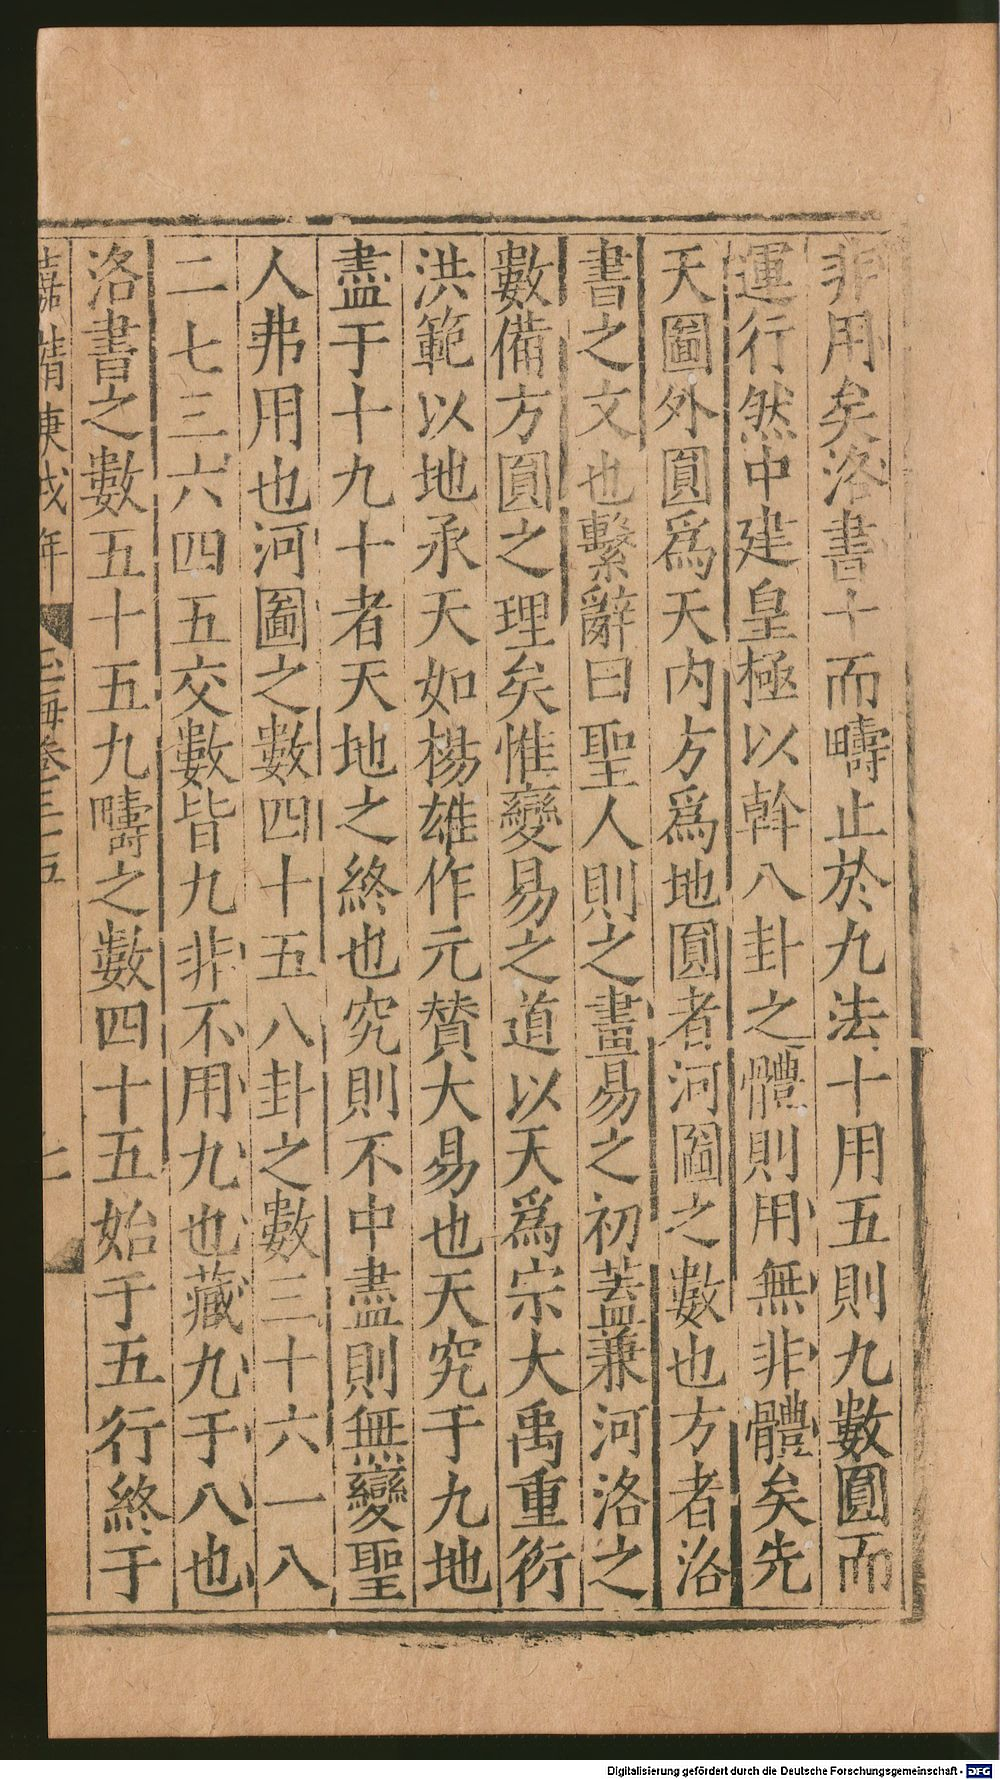 非用矣洛書十而疇止於九法十用五則九數圓而
運行然中建皇極以斡八卦之體則用無非體矣先
天圖外圓爲天内方爲地圓者河圖之數也方者洛
書之文也繫辭曰聖人則之畫易之初蓋兼河洛之
數備方圓之理矣惟變易之道以天爲宗大禹重衍
洪範以地承天如楊雄作元賛大易也天究于九地
盡于十九十者天地之終也究則不中盡則無變聖
人弗用也河圖之數四十五八卦之數三十六一八
二七三六四五交數皆九非不用九也藏九于八也
洛書之數五十五九疇之數四十五始于五行終于
嘉靖庚戌年 玉海卷三十五 七
Digitalisierung gefördert durch die Deutsche Forschungsgemeinschaft - DFG